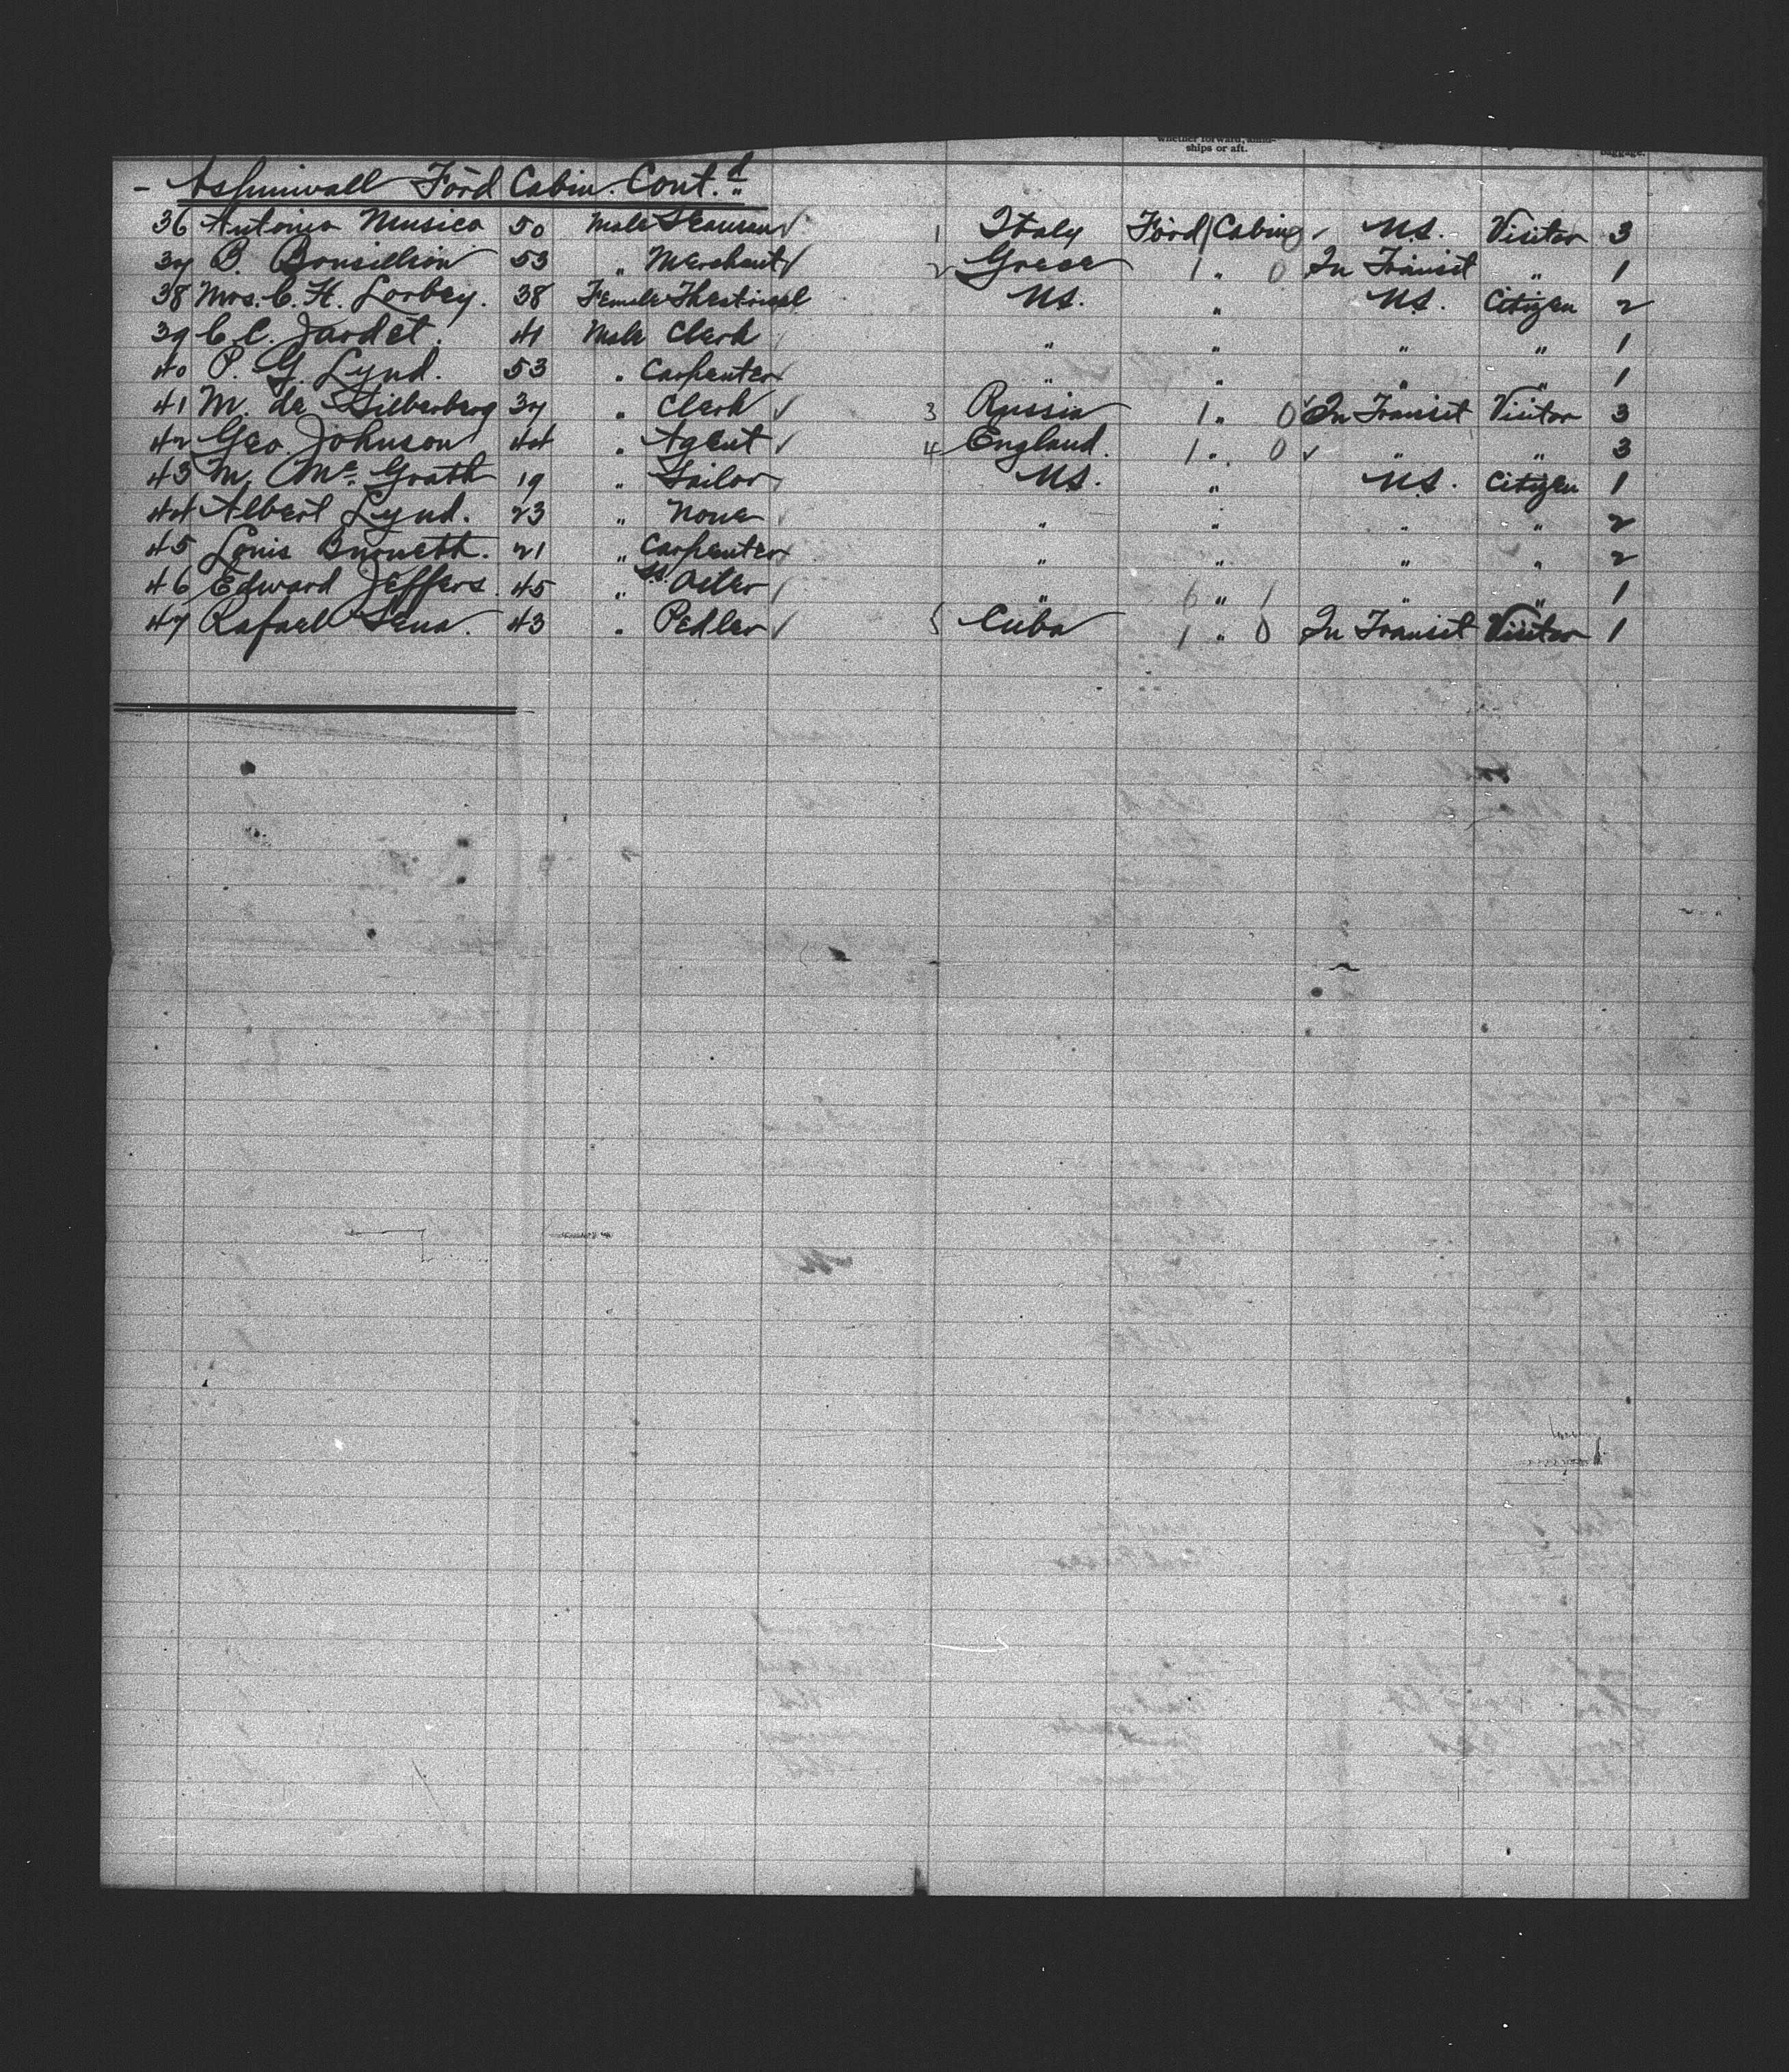 whether forward, amid-
ships or aft.
baggage.
- Aspinwall Förd Cabin. Cont.d
36 Antonio Musica 50 Male Seaman ✓ 1 Italy Förd Cabin ✓ U.S. Visitor 3
37 B. 53 " Merchant ✓ 2 Greece 1 " 0 In Transit " 1
38 Mrs. C. H. Lorbey. 38 Female Theatrical U.S. " U.S. Citizen 2
39 C. C. Jardet. 41 Male Clerk " " " " 1
40 P. G. Lynd. 53 " Carpenter " " " " 1
41 M. de Silberberg 37 " Clerk ✓ 3 Russia 1 " 0 ✓ In Transit Visitor 3
42 Geo. Johnson 44 " Agent ✓ 4 England. 1 " 0 ✓ " " 3
43 M. Mc Grath 19 " Sailor U.S. " U.S. Citizen 1
44 Albert Lynd. 23 " None " " " " 2
45 Louis 21 " Carpenter " " " " 2
46 Edward Jeffers. 45 " Oiler " 6 " 1 " " 1
47 Rafael Sena. 43 " Pedler ✓ 5 Cuba 1 " 0 In Transit Visitor 1